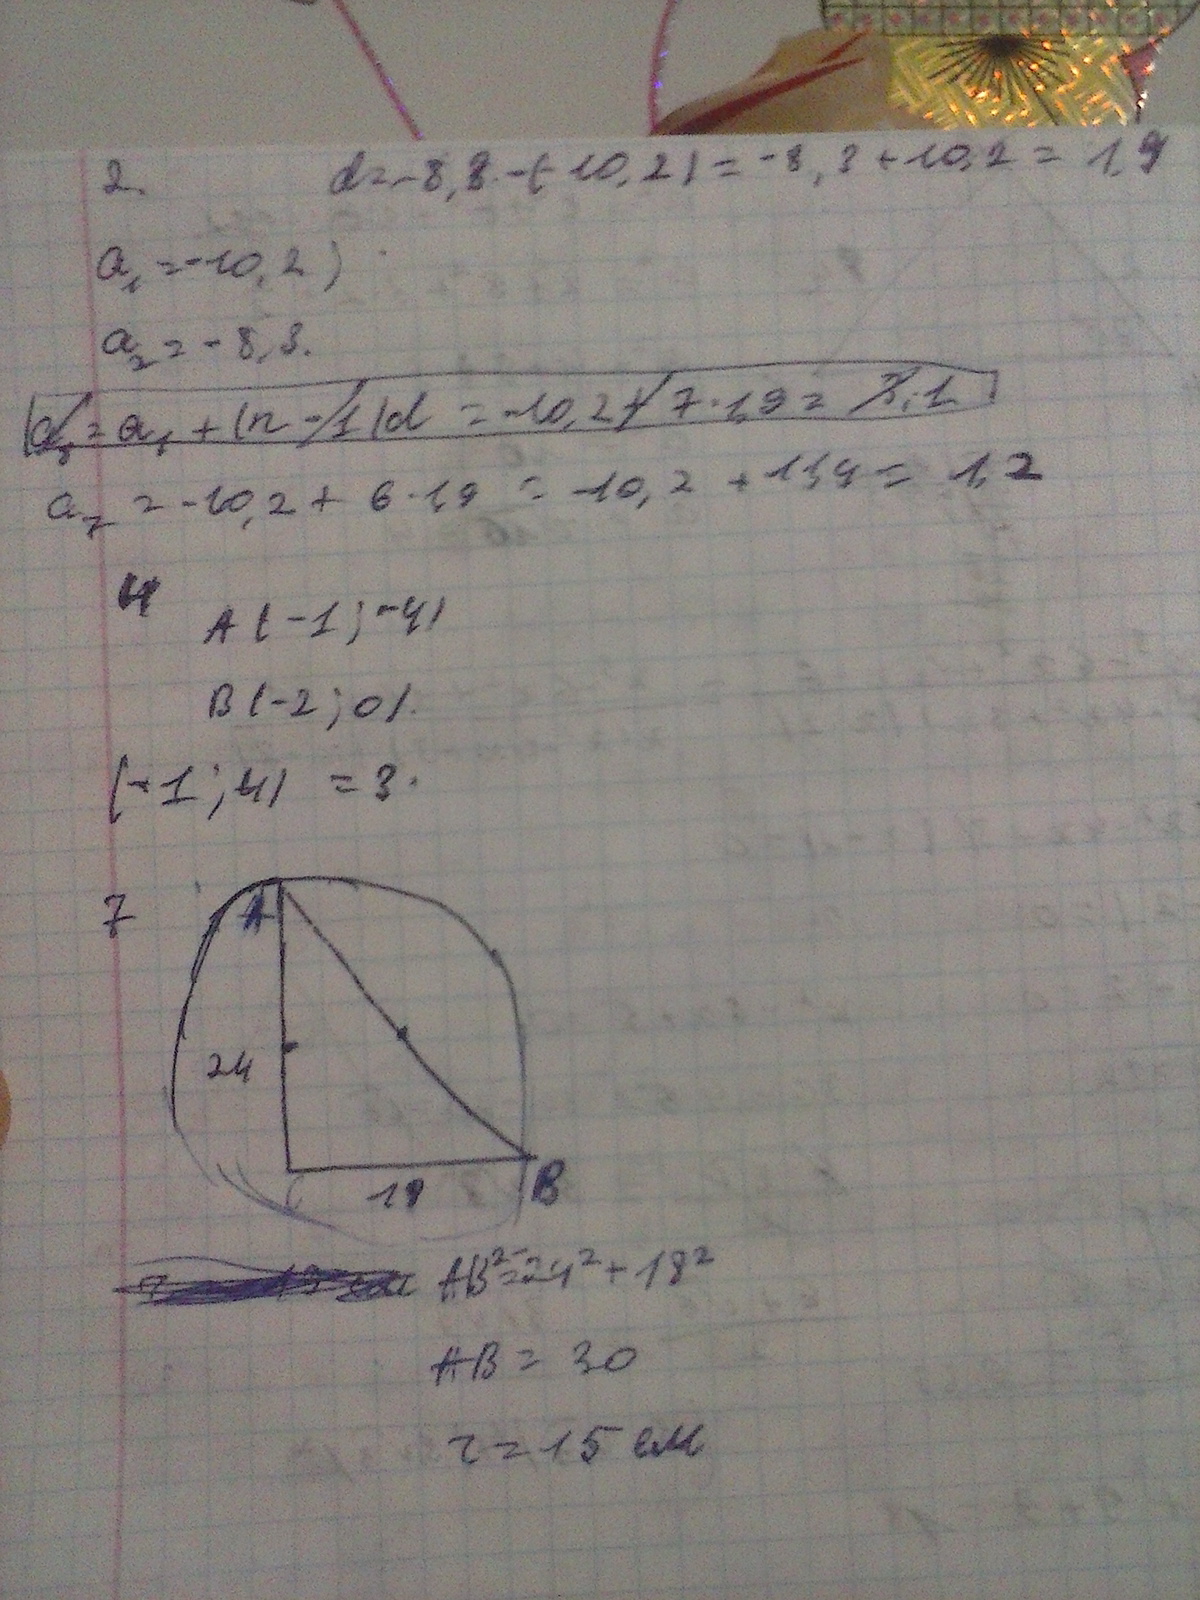 2. d=-8,3-(-10,2)=-8,3+10,2=1,9
a₁=-10,2)
a₂=-8,3.
a₈=a₁+(n-1)d=-10,2+7·1,9=3,1
a₇=-10,2+6·1,9=-10,2+11,4=1,2
4
A(-1;-4)
B(-2;0).
(-1;4)=3.
7
A
24
18 B
AB²=24²+18²
AB=30
r=15 см